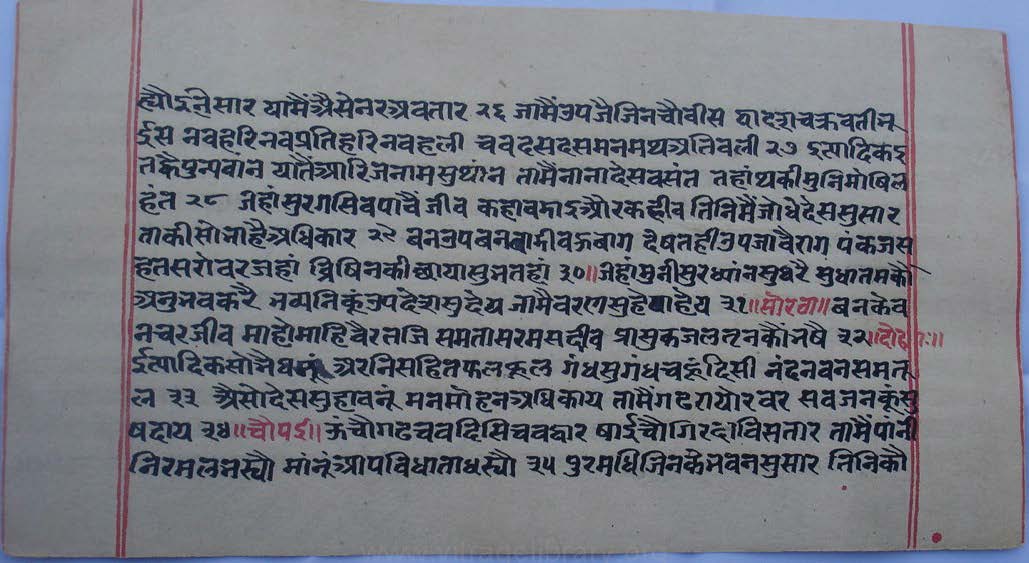 ह्यौ ऽनिसार यामैं अैसे नर अवतार २६ जामैं उपजै जिन चौवीस द्वादश चक्रवर्ती नृ
ईस नव हरि नव प्रतिहरि नव हली चवदस दस मनमथ अति वली २७ इत्यादिक इ
त कै पुन्यवान यातैं आरिज नाम सुथांन तामैं नाना देस वसंत तहां थकी मुनि मोषि ल
हंत २८ जिहां सुरग सिव पावैं जीव कहा वदाइ और कहीव तिनि मैं जोधेदेस सुसार
ताकी सोभा है अधिकार २९ बन उपबन वादी वऊ बाग देषत ही उपजावै राग पंकज स
हत सरोवर जहां त्रिषिन की छाया सुभ तहां ३० ॥ जिहां मुनीसुर ध्यांन सु धरै सुधातम कौ
अनुभव करै भव्यनि कू उपदेश सु देय जामै वरण सु हे षा हेय ३१ ॥ सोरठा ॥ बन के व
नचर जीव माहोमाहि वैर तजि समता सरम सदीव प्रासुक जल तन कौं भषै ३२ ॥ दोहा ॥
ईत्यादिक सोभै अरनि सहित फल फूल गंध सुगंध चहूं दिसी नंदन वन सम तू
ल ३३ अैसो देस सुहावनूं मन मोहन अधिकाय तामैं गढ रायो र वर सव जन कूं सु
षदाय ३४ ॥ चौपई ॥ ऊंचौ गढ चव दिसि चव द्वार षाई चौगिरदा विसतार तामैं पांनी
निरमल भर्यौ मांनूं आप विधाता धर्यौ ३५ पुर मधि जिन के भवन सु सार तिनि कौ
www.vitragelibrary.org